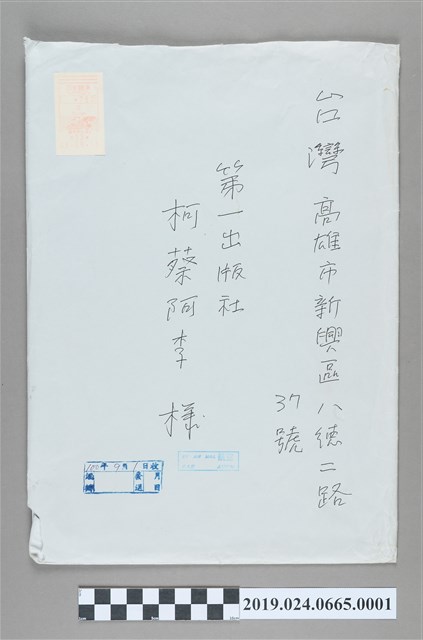 台灣高雄市新興區八德二路
37號
第一出版社
柯蔡阿李 樣
年9月 日收
2019.024.0665.0001